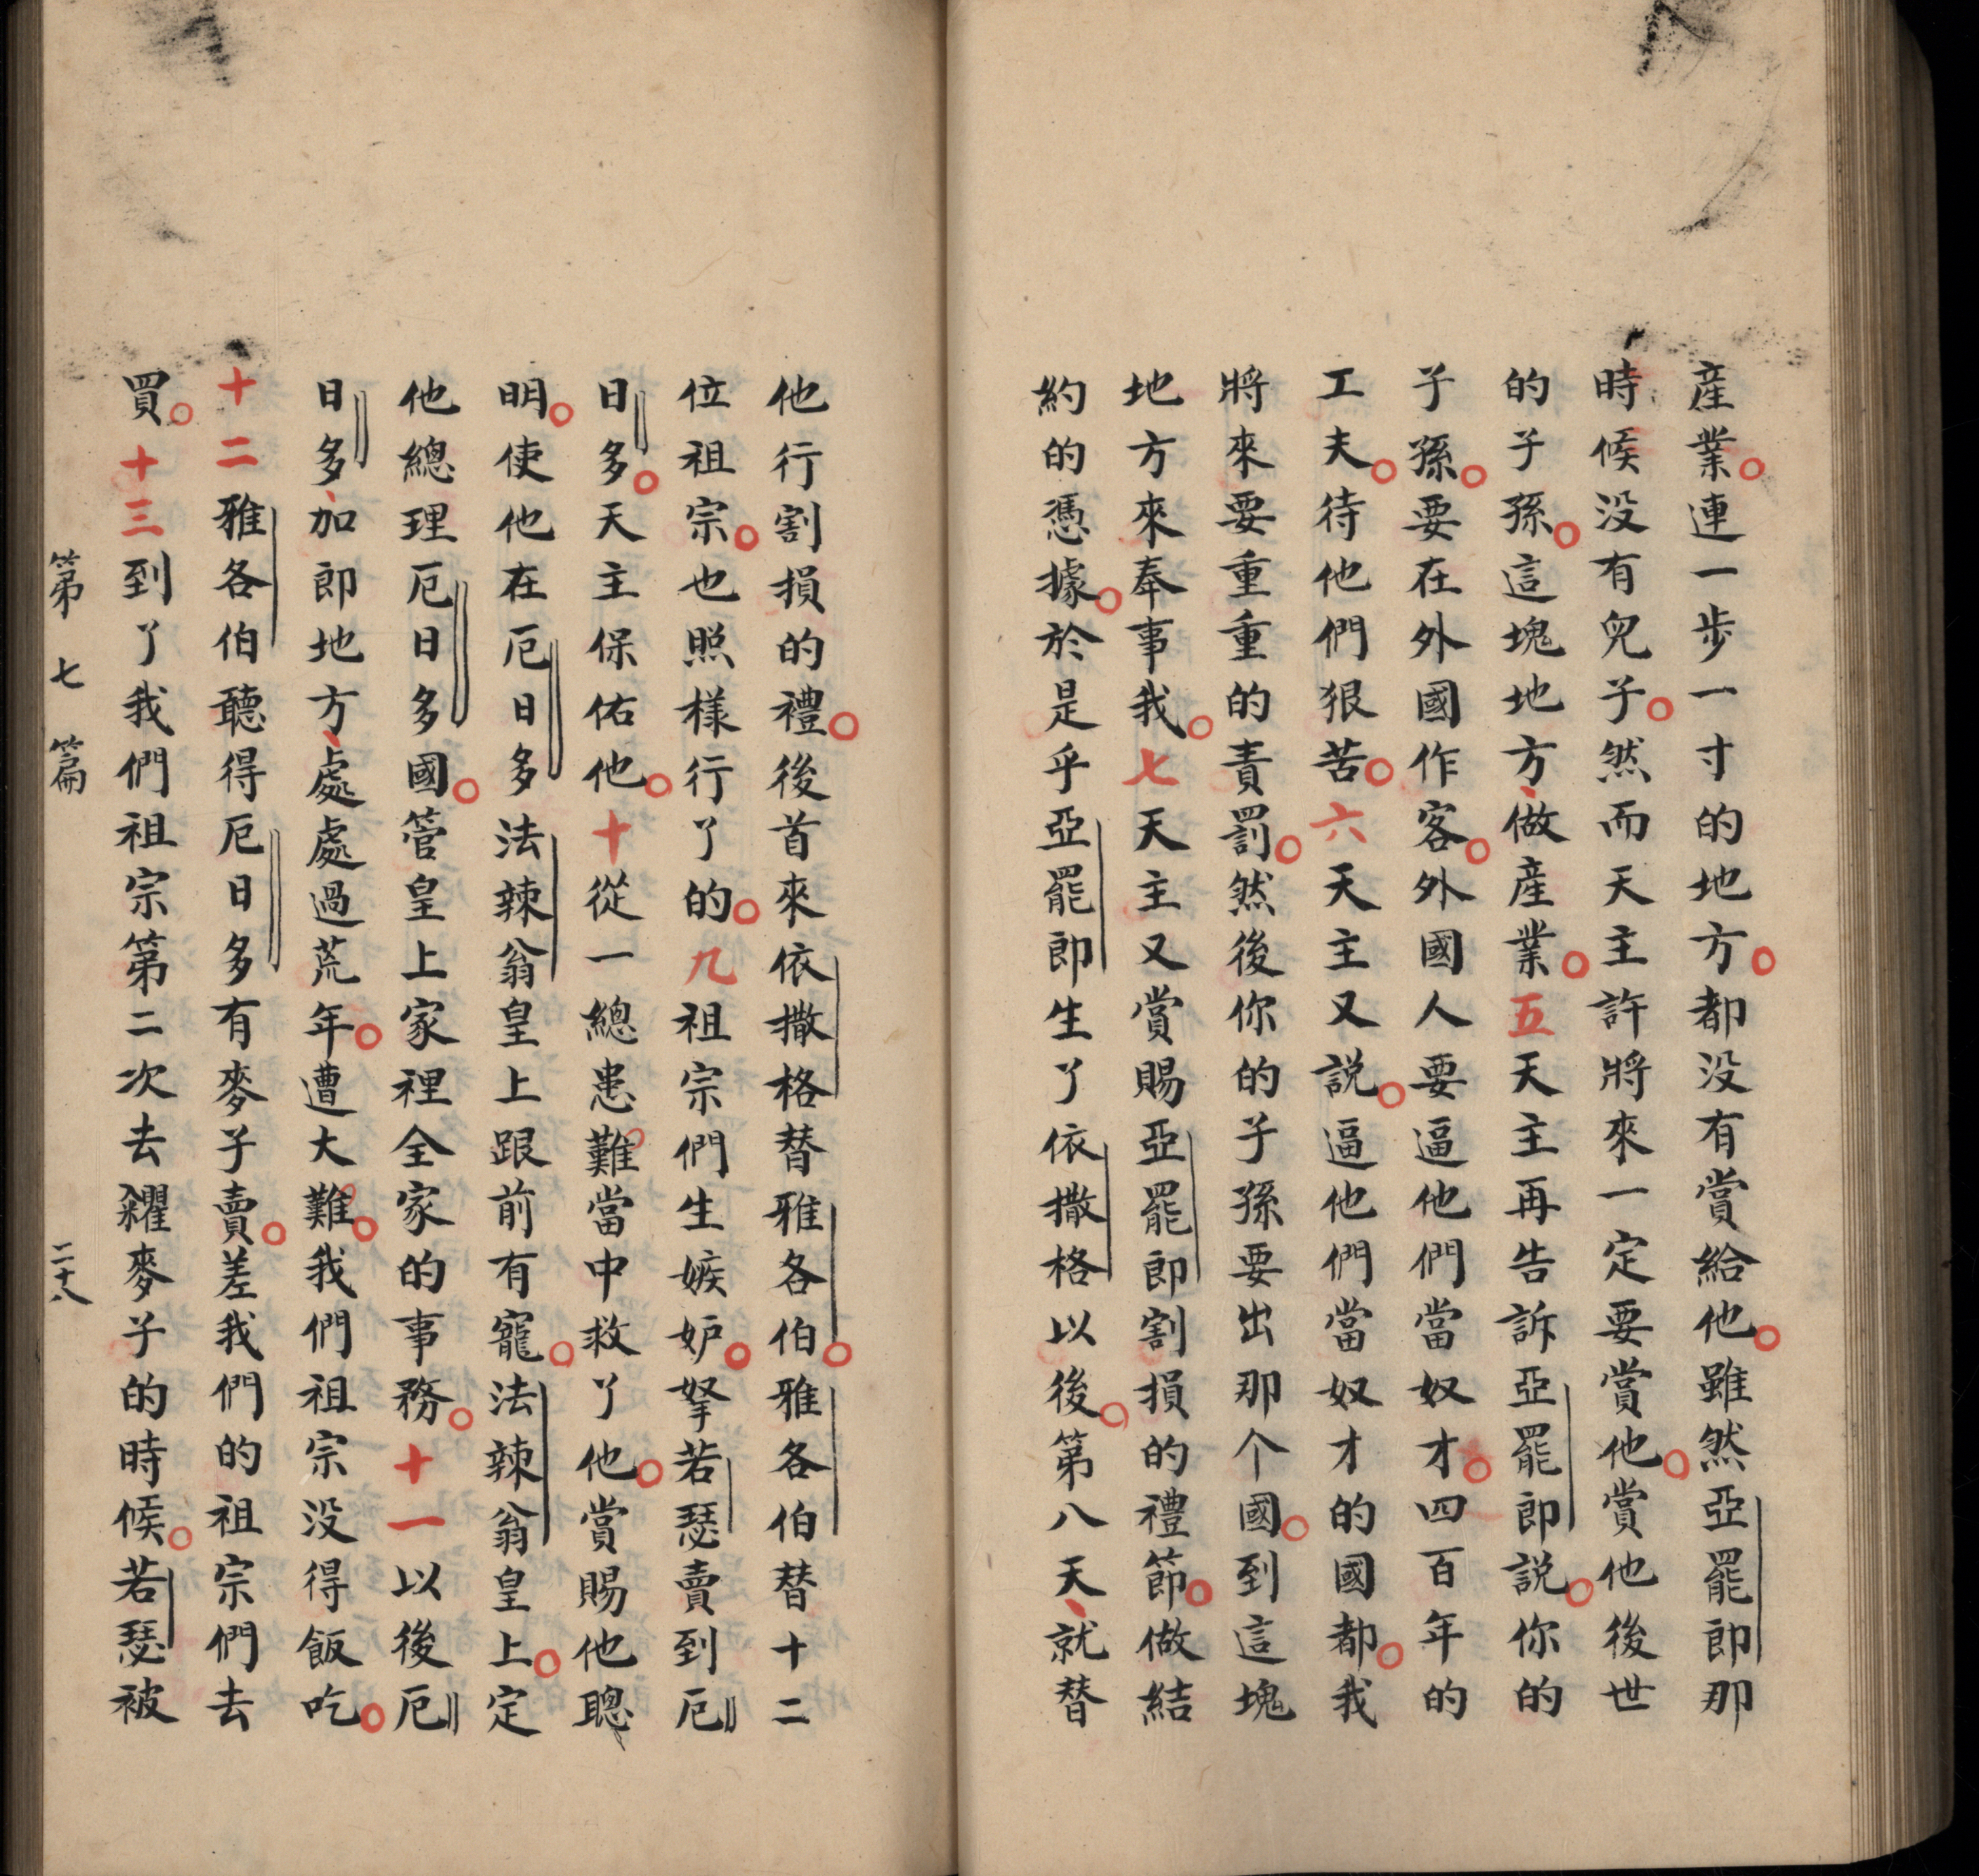 産業。連一步一寸的地方。都没有賞給他。雖然亞罷郎那
時候没有兒子。然而天主許將來一定要賞他。賞他後世
的子孫。這塊地方、做産業。五天主再告訴亞罷郎說。你的
子孫。要在外國作客。外國人要逼他們當奴才。四百年的
工夫。待他們狠苦。六天主又說。逼他們當奴才的國都。我
將來要重重的責罰。然後你的子孫要出那个國。到這塊
地方來奉事我。七天主又賞賜亞罷郎割損的禮節。做結
約的憑據。於是乎亞罷郎生了依撒格以後。第八天、就替
他行割損的禮。後首來依撒格替雅各伯。雅各伯替十二
位祖宗。也照樣行了的。九祖宗們生嫉妒。拏若瑟賣到厄
日多。天主保佑他。十從一總患難當中救了他。賞賜他聰
明。使他在厄日多法辣翁皇上跟前有寵。法辣翁皇上。定
他總理厄日多國。管皇上家裡全家的事務。十一以後厄
日多、加郎地方、處處過荒年。遭大難。我們祖宗没得飯吃。
十二雅各伯聽得厄日多有麥子賣。差我們的祖宗們去
買。十三到了我們祖宗第二次去糴麥子的時候。若瑟被
第七篇 二十八